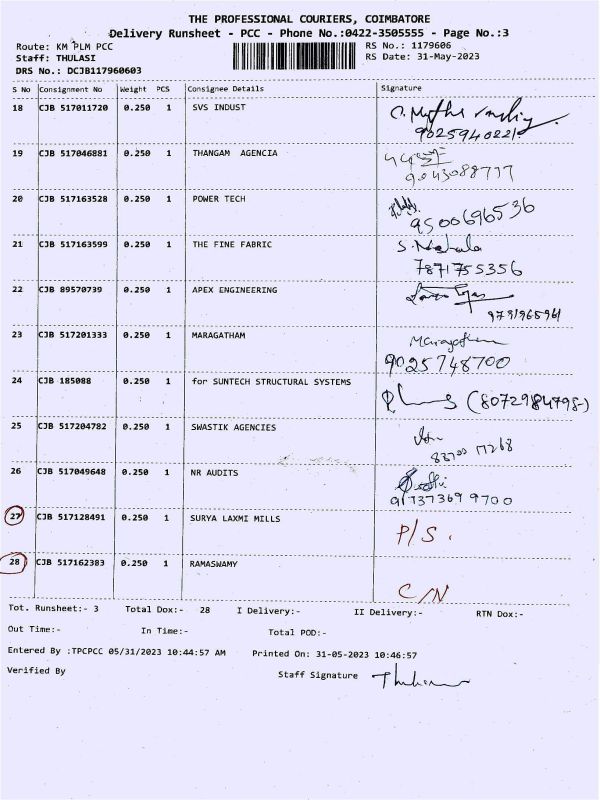 THE PROFESSIONAL COURIERS, COIMBATORE
Delivery Runsheet - PCC - Phone No.:0422-3505555 - Page No.:3
Route: KM PLM PCC RS No.: 1179606
Staff: THULASI RS Date: 31-May-2023
DRS No.: DCJB117960603
S No Consignment No Weight PCS Consignee Details Signature
18 CJB 517011720 0.250 1 SVS INDUST
9025940221
19 CJB 517046881 0.250 1 THANGAM AGENCIA
9043088777
20 CJB 517163528 0.250 1 POWER TECH
9500696536
21 CJB 517163599 0.250 1 THE FINE FABRIC S. Mekala
7871755356
22 CJB 89570739 0.250 1 APEX ENGINEERING
9791965961
23 CJB 517201333 0.250 1 MARAGATHAM Maragatham
9025748700
24 CJB 185088 0.250 1 for SUNTECH STRUCTURAL SYSTEMS
(8072984798-)
25 CJB 517204782 0.250 1 SWASTIK AGENCIES
26 CJB 517049648 0.250 1 NR AUDITS
9173736 99700
27 CJB 517128491 0.250 1 SURYA LAXMI MILLS P/S.
28 CJB 517162383 0.250 1 RAMASWAMY
C/N
Tot. Runsheet:- 3 Total Dox:- 28 I Delivery:- II Delivery:- RTN Dox:-
Out Time:- In Time:- Total POD:-
Entered By :TPCPCC 05/31/2023 10:44:57 AM Printed On: 31-05-2023 10:46:57
Verified By Staff Signature